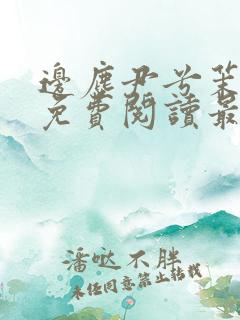 邊塵尹兮茱
免費閱讀最
潘哒不胖
未经同意禁止转载